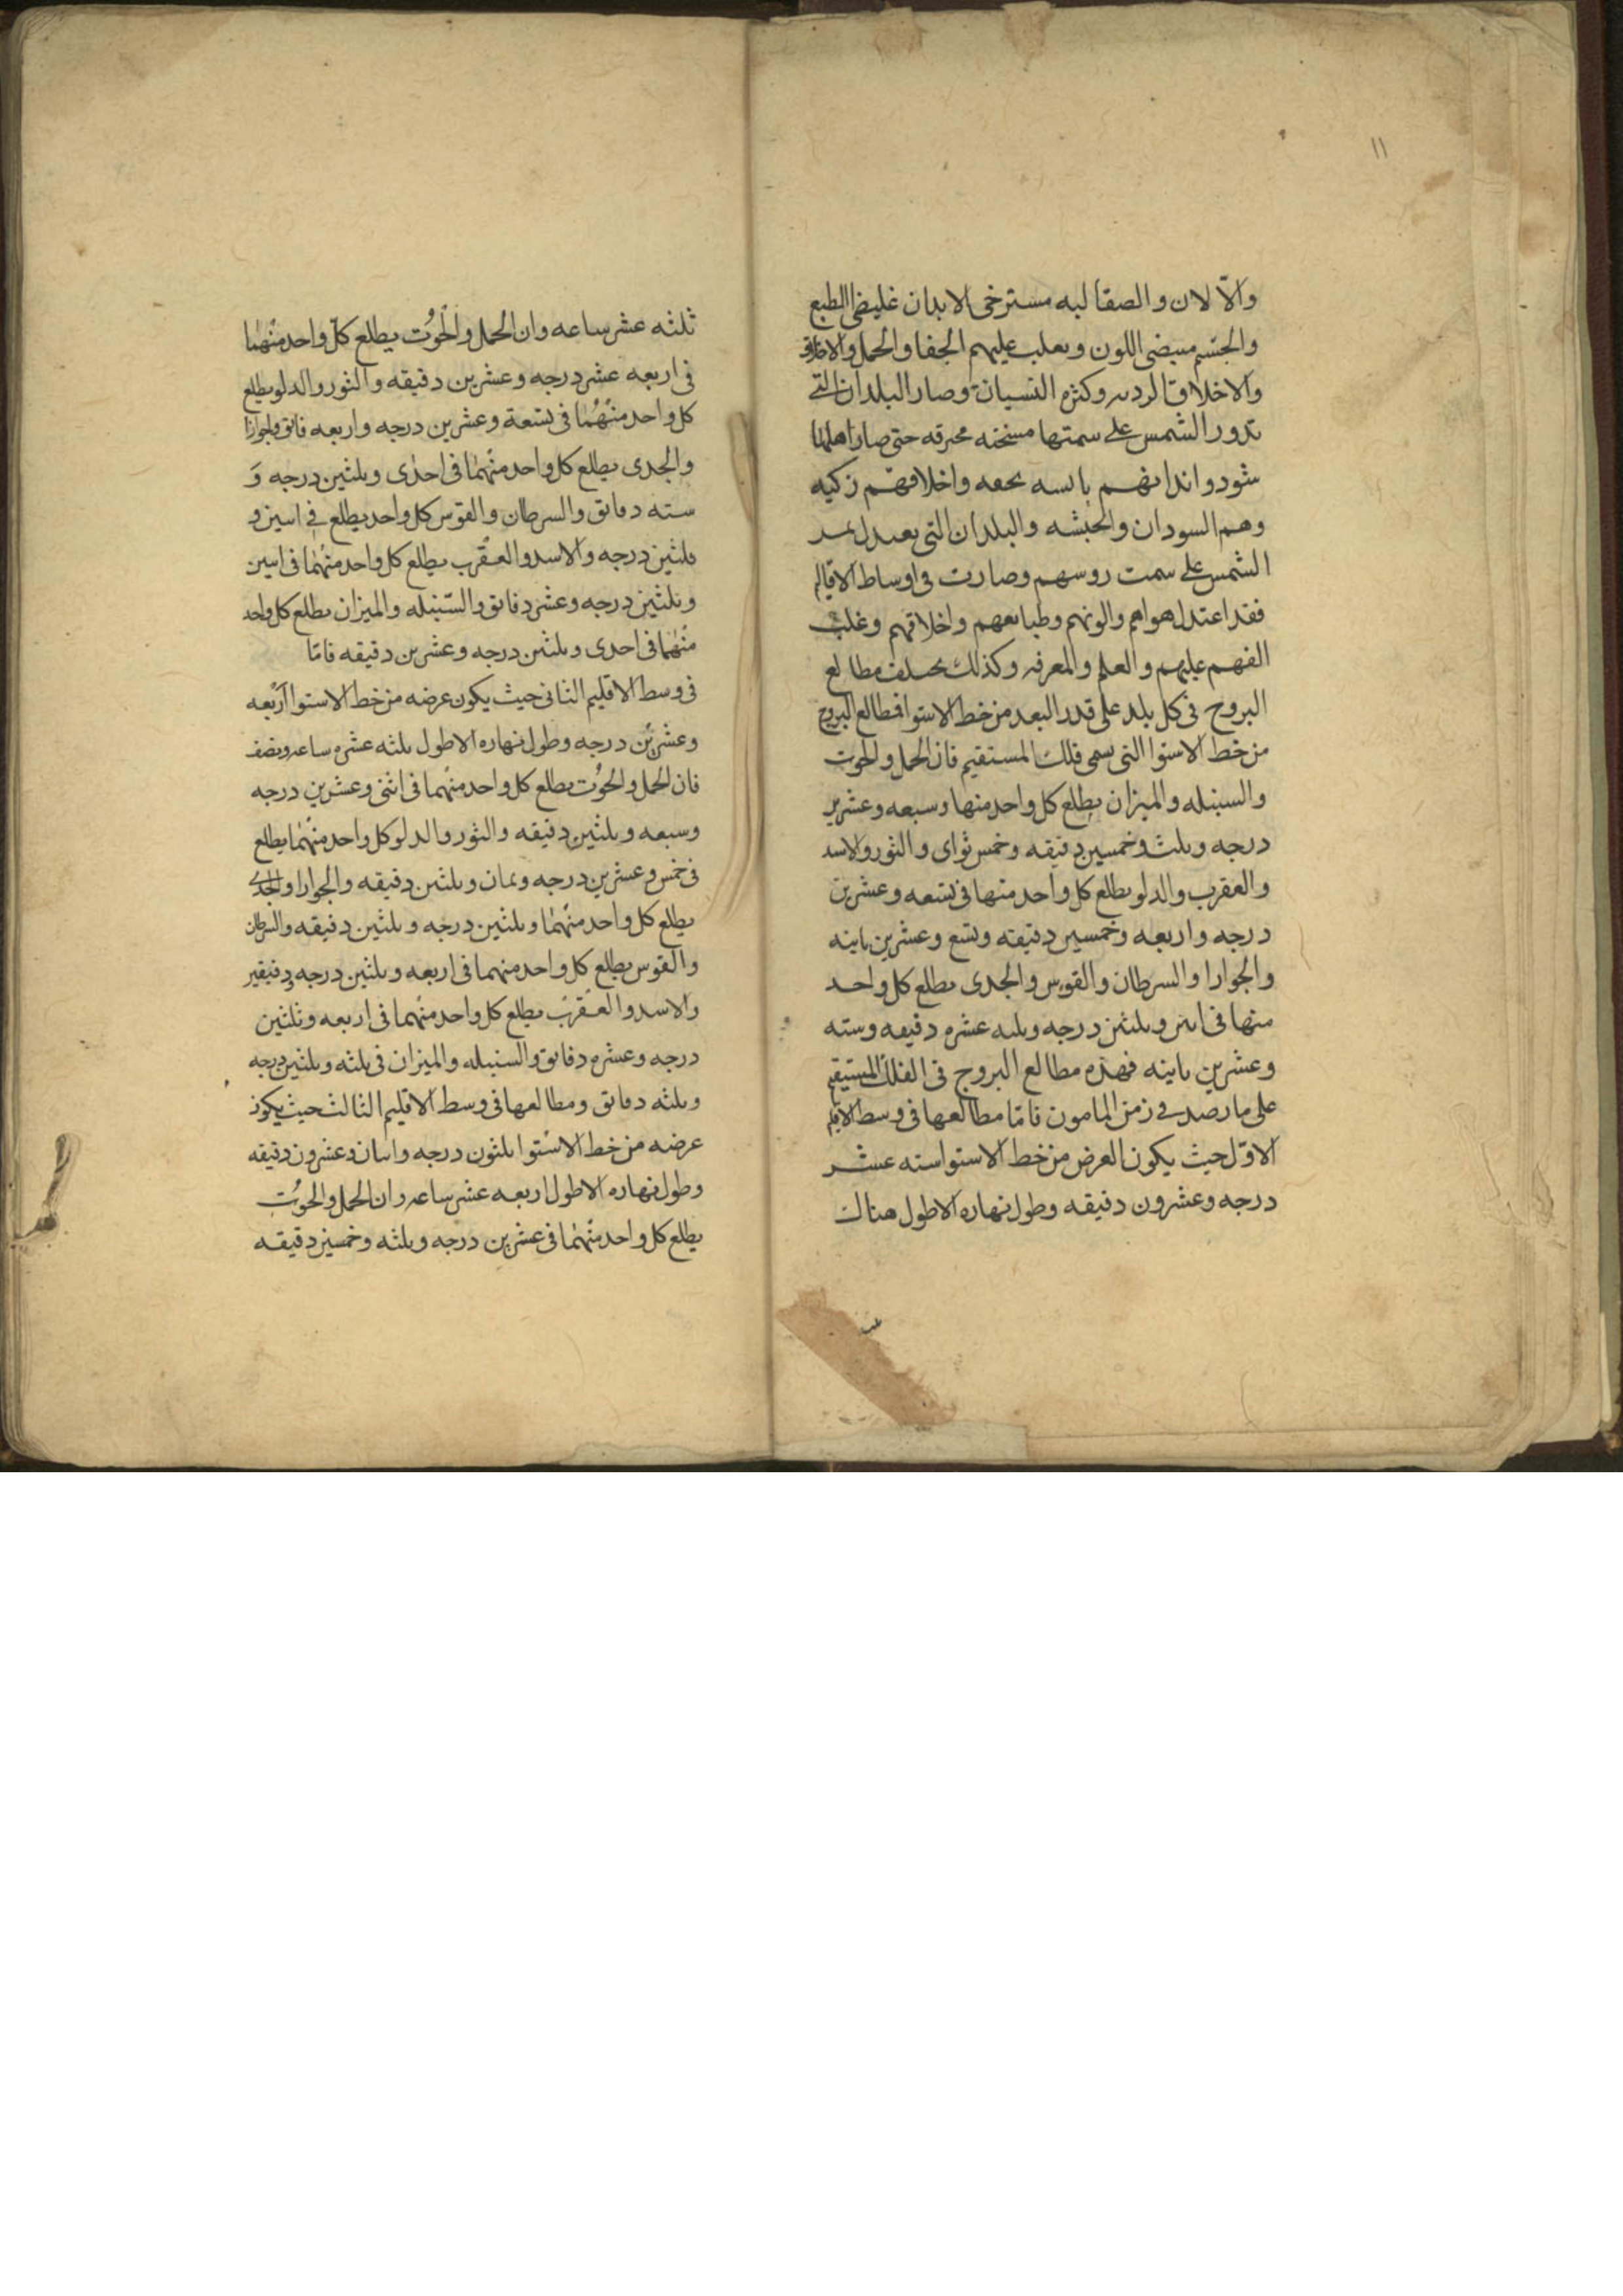 ١١
والآلان والصقالبه مسترخى الابدان غليضى الطبع
والجسم مبيضى اللون ويعلب عليهم الجفا والحمل
والاخلاق الرديه وكثره النسيان وصار البلدان التے
تدور الشمس على سمتها مسخنه محرقه حتى صار اهلها
سودوا وابدانهم يابسه نحفه واخلاقهم زكيه
وهم السودان والحبشه والبلدان التى يعتدل
الشمس على سمت روسهم وصارت فى اوساط الاقاليم
فقد اعتدل هواهم والونهم وطبايعهم واخلاقهم وغلب
الفهم عليهم والعلم والمعرفه وكذلك يختلف مطالع
البروج فى كل بلد على قدر البعد من خط الاستوا فطالع البروج
من خط الاستوا التى يسمى فلك المستقيم فان الحمل والحوت
والسنبله والميزان يطلع كل واحد منها وسبعه وعشرين
درجه وثلث وخمسين دقيقه وخمس ثوانى والثور والاسد
والعقرب والدلو يطلع كل واحد منها فى تسعه وعشرين
درجه واربعه وخمسين دقيقه وتسع وعشرين ثانيه
والجوازا والسرطان والقوس والجدى يطلع كل واحد
منها فى اثنين وثلثين درجه وثلثه عشره دقيقه وسته
وعشرين ثانيه فهذه مطالع البروج فى الفلك المستقيم
على ما رصد فى زمن المامون فامّا مطالعها فى وسط الاقليم
الاوّل حيث يكون العرض من خط الاستوا سته عشر
درجه وعشرون دقيقه وطول نهاره الاطول هناك
ثلثه عشر ساعه وان الحمل والحوت يطلع كلّ واحد منهما
فى اربعه عشر درجه وعشرين دقيقه والثور والدلو يطلع
كل واحد منهما فى تسعة وعشرين درجه واربعه
والجدى يطلع كل واحد منهما فى احدى وثلثين درجه و
سته دقائق والسرطان والقوس كل واحد يطلع فى اثنين و
ثلثين درجه والاسد والعقرب يطلع كل واحد منهما فى اثنين
وثلثين درجه وعشر دقائق والسّنبله والميزان يطلع كل واحد
منهما فى احدى وثلثين درجه وعشرين دقيقه فامّا
فى وسط الاقليم الثانى حيث يكون عرضه من خط الاستوا اربعه
وعشرين درجه وطول نهاره الاطول ثلثه عشره ساعه ونصف
فان الحمل والحوت يطلع كل واحد منهما فى اثنى وعشرين درجه
وسبعه وثلثين دقيقه والثور والدلو كل واحد منهما يطلع
فى خمس وعشرين درجه وثمان وثلثين دقيقه والجوازا والجدى
يطلع كل واحد منهما وثلثين درجه وثلثين دقيقه والسرطان
والقوس يطلع كل واحد منهما فى اربعه وثلثين درجه ودقيقتين
والاسد والعقرب يطلع كل واحد منهما فى اربعه وثلثين
درجه وعشره دقائق والسنبله والميزان فى ثلثه وثلثين درجه
وثلثه دقائق ومطالعها فى وسط الاقليم الثالث حيث يكون
عرضه من خط الاستوا ثلثون درجه واثنان وعشرون دقيقه
وطول نهاره الاطول اربعه عشر ساعه وان الحمل والحوت
يطلع كل واحد منهما فى عشرين درجه وثلثه وخمسين دقيقه